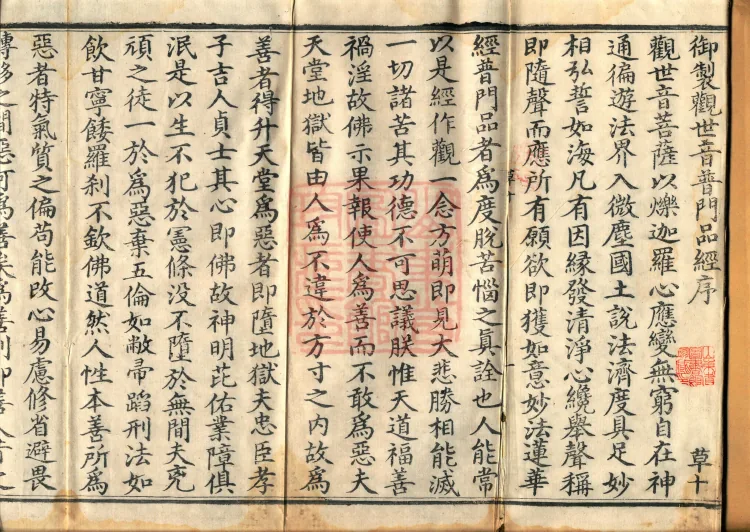 御製觀世音普門品經序
草十
觀世音菩薩以爍迦羅心應變無窮自在神
通徧遊法界入微塵國土說法濟度具足妙
相弘誓如海凡有因緣發清淨心纔舉聲稱
即隨聲而應所有願欲即獲如意妙法蓮華
經普門品者為度脫苦惱之真詮也人能常
以是經作觀一念方萌即見大悲勝相能滅
一切諸苦其功德不可思議朕惟天道福善
禍淫故佛示果報使人為善而不敢為惡夫
天堂地獄皆由人為不違於方寸之內故為
善者得升天堂為惡者即墮地獄夫忠臣孝
子吉人貞士其心即佛故神明芘佑業障俱
泯是以生不犯於憲條沒不墮於無間夫兇
頑之徒一於為惡棄五倫如敝帚蹈刑法如
飲甘寧餧羅剎不欽佛道然人性本善所為
惡者特氣質之偏苟能改心易慮修省避畏
轉移之間惡可為善矣為善則即善人音之